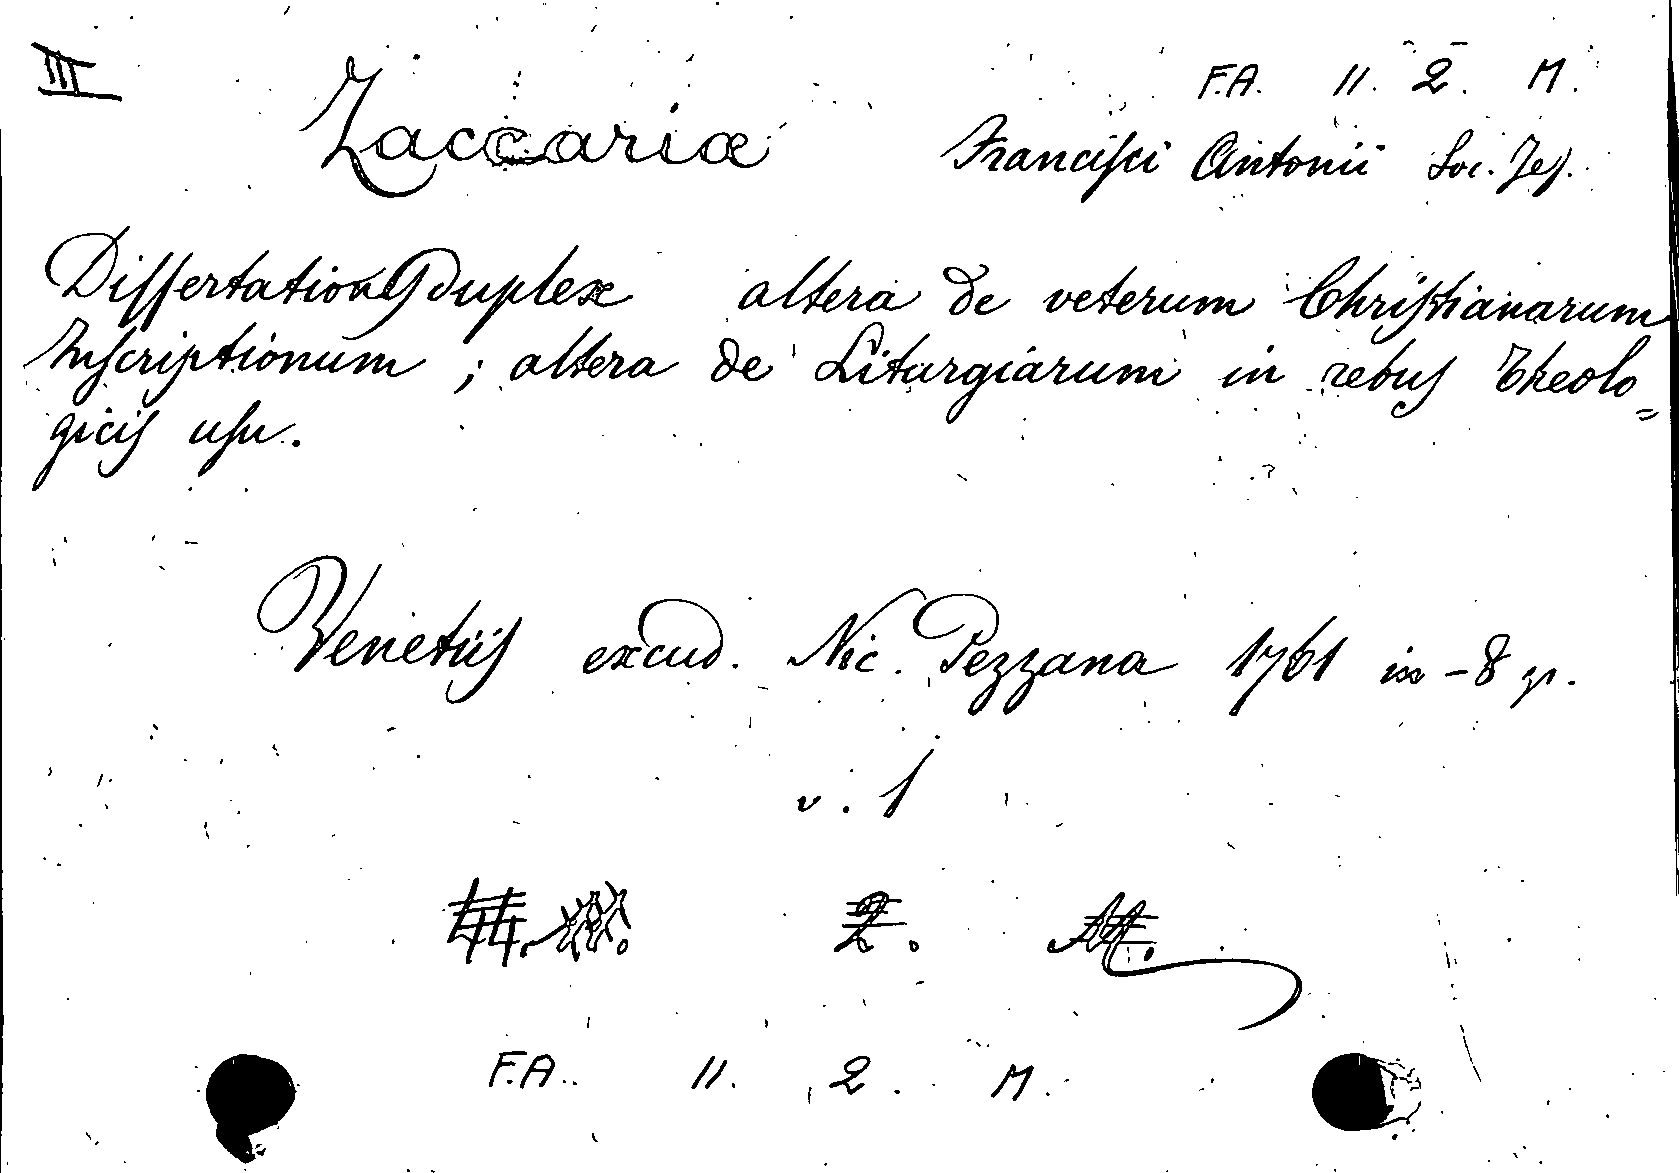 III
F.A. 11. 2. M.
Zaccariæ Francisci Antonii Soc. Jes.
Dissertatio duplex altera de veterum Christianarum
Inscriptionum ; altera de Liturgiarum in rebus Theolo=
gicis usu.
Venetiis excud. Nic. Pezzana 1761 in-8 gr.
v. 1
2. M.
F.A. 11. 2. M.